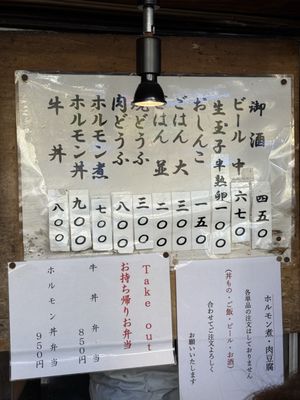 御酒 四五〇
ビール 中 六七〇
生玉子 半熟卵 一〇〇
おしんこ 一五〇
ごはん 大 三〇〇
ごはん 並 二〇〇
焼どうふ 三〇〇
肉どうふ 八〇〇
ホルモン煮 七〇〇
ホルモン丼 九〇〇
牛丼 八〇〇
ホルモン煮・肉豆腐
各単品の注文はしておりません
(丼もの・ご飯・ビール・お酒)
合わせてご注文よろしく
お願いいたします
Take out
お持ち帰りお弁当
牛丼弁当 850円
ホルモン丼弁当 950円